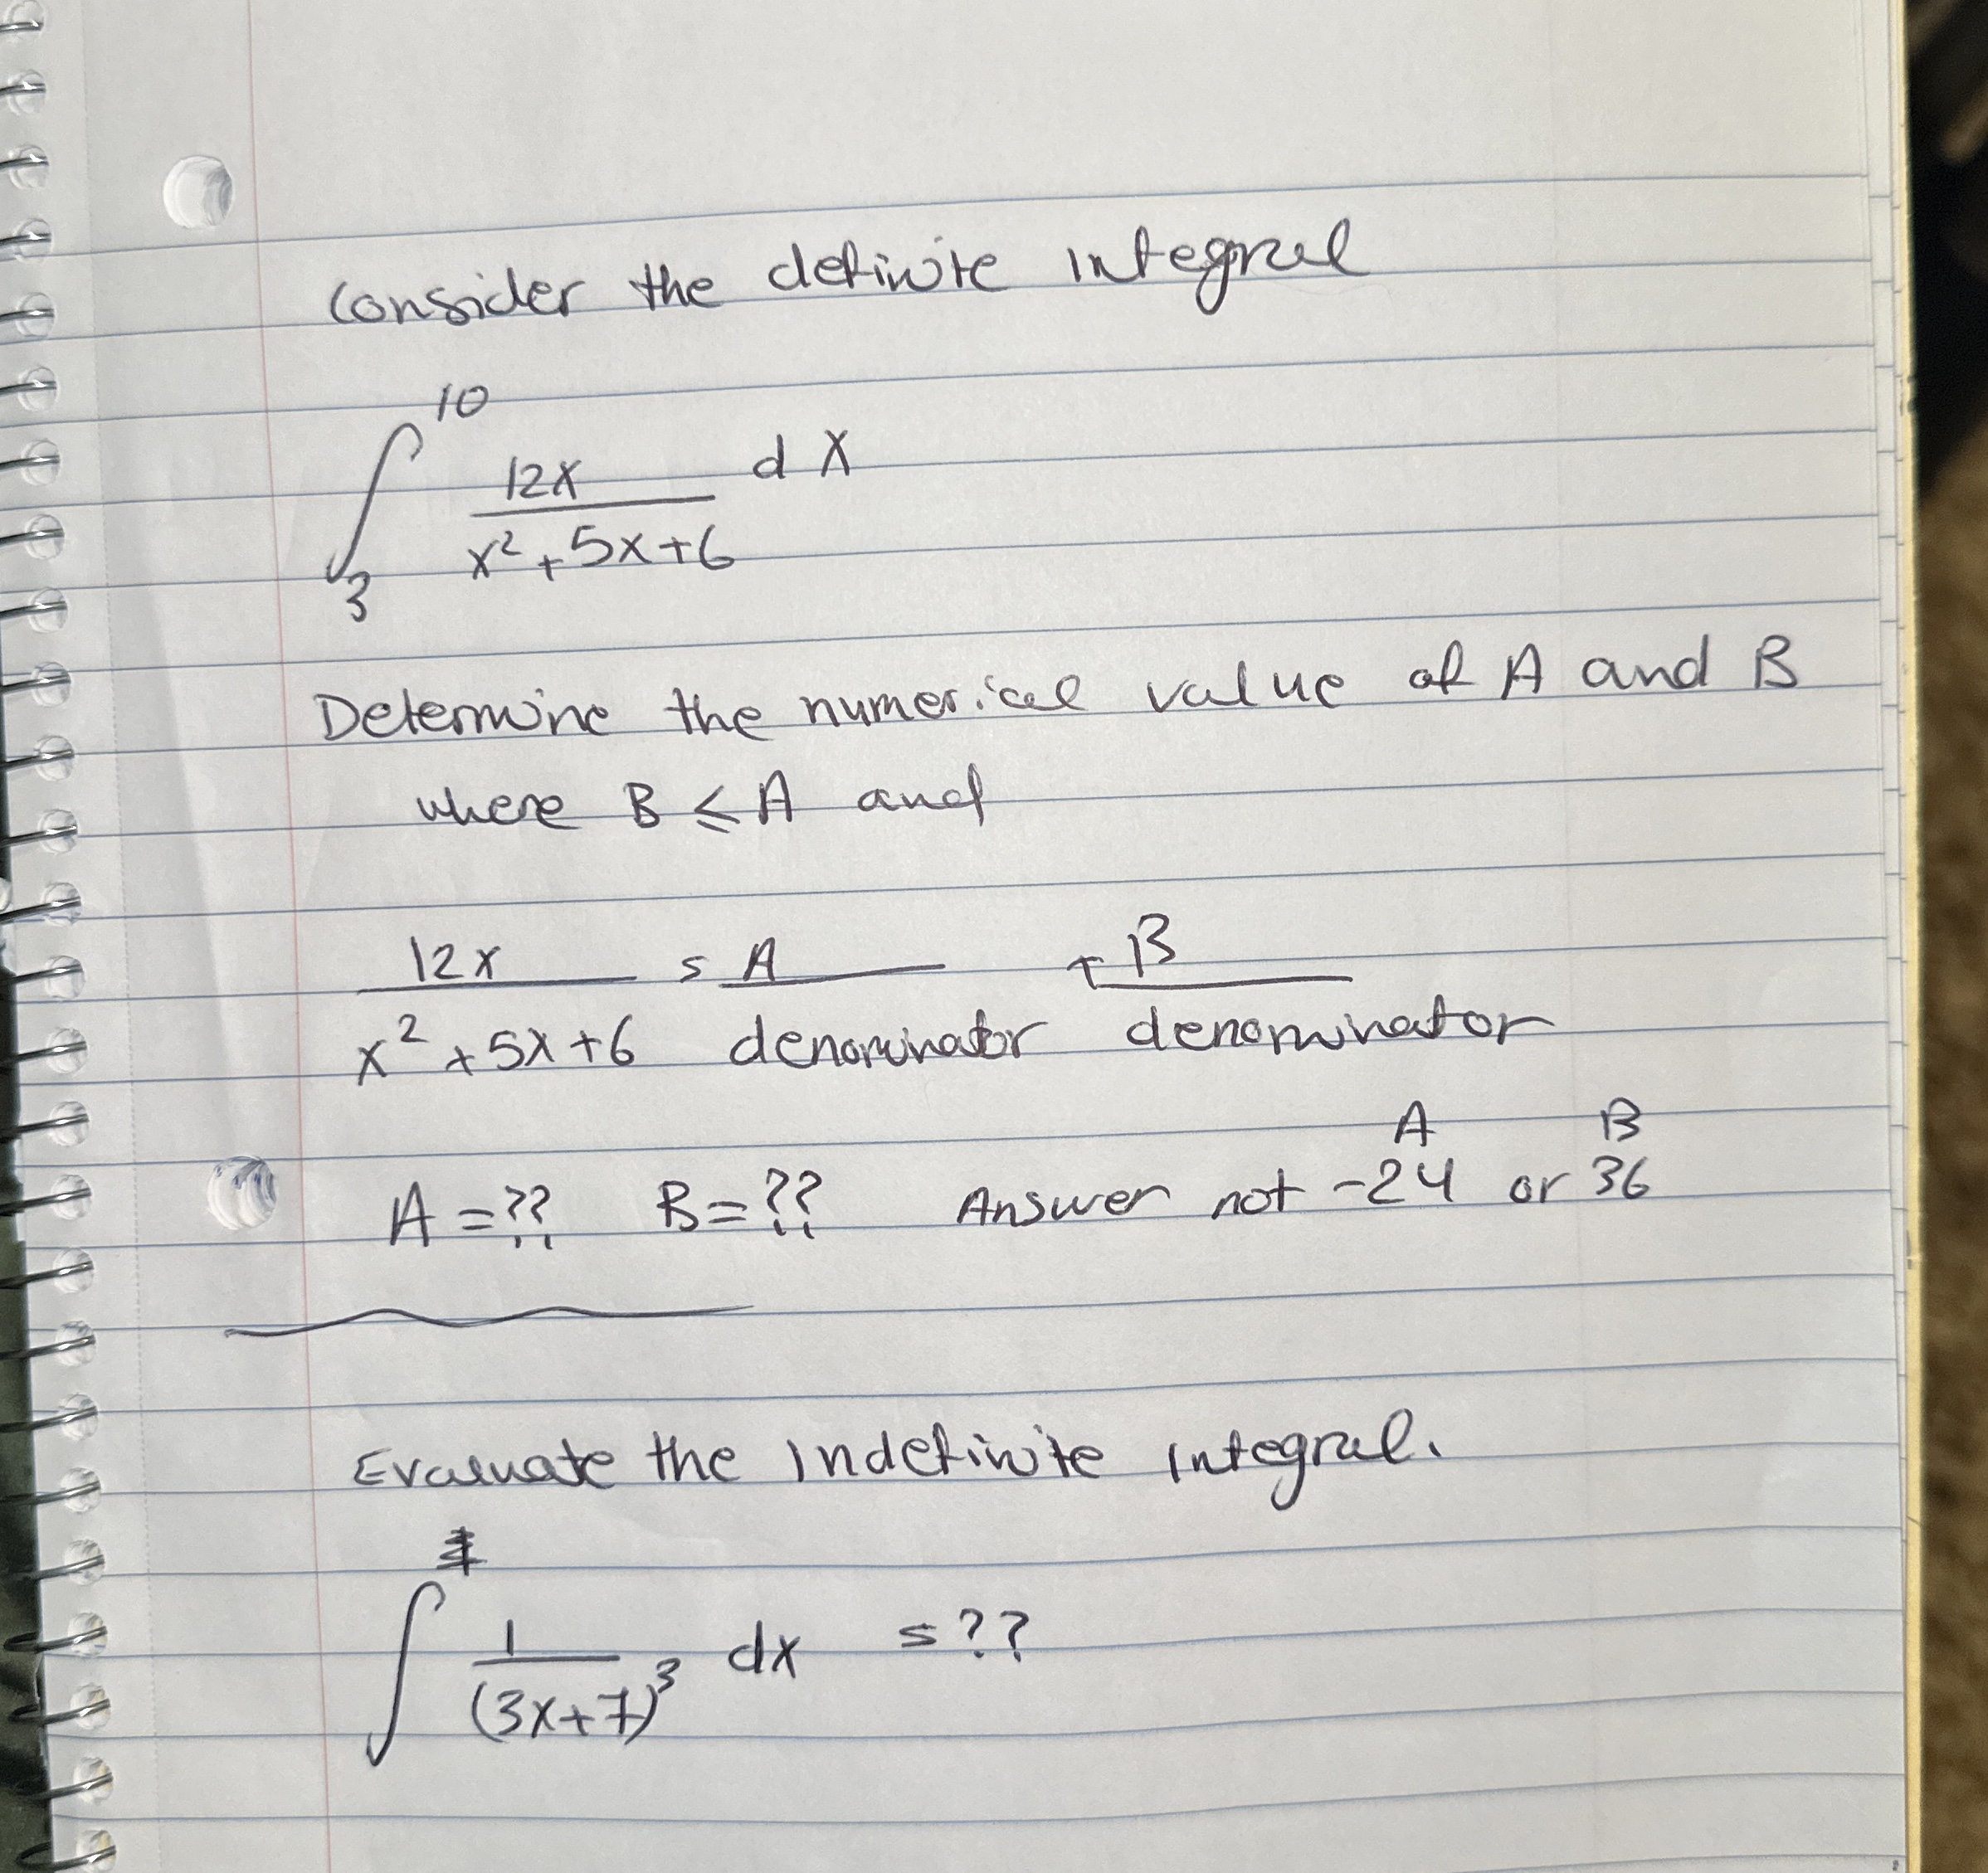 Consider the definite integral
∫₃¹⁰ 12x / (x² + 5x + 6) dx
Determine the numerical value of A and B
where B ≤ A and
12x / (x² + 5x + 6) = A / denominator + B / denominator
A B
A = ?? B = ?? Answer not -24 or 36
Evaluate the indefinite integral.
∫ 1 / (3x+7)³ dx = ??